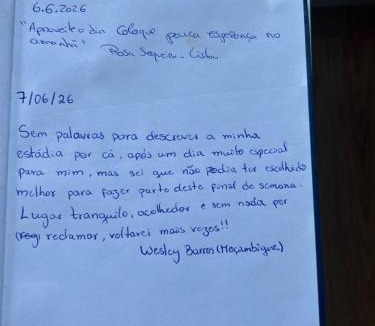 6.6.2026
"Aproveite o dia Coloque pouca esperança no
amanhã"
Rosa Sequeira - Lisboa
7/06/26
Sem palavras para descrever a minha
estádia por cá, após um dia muito especial
para mim, mas sei que não podia ter escolhido
melhor para fazer parte deste final de semana.
Lugar tranquilo, acolhedor e sem nada por
reclamar, voltarei mais vezes!!
Wesley Barros (Moçambique)